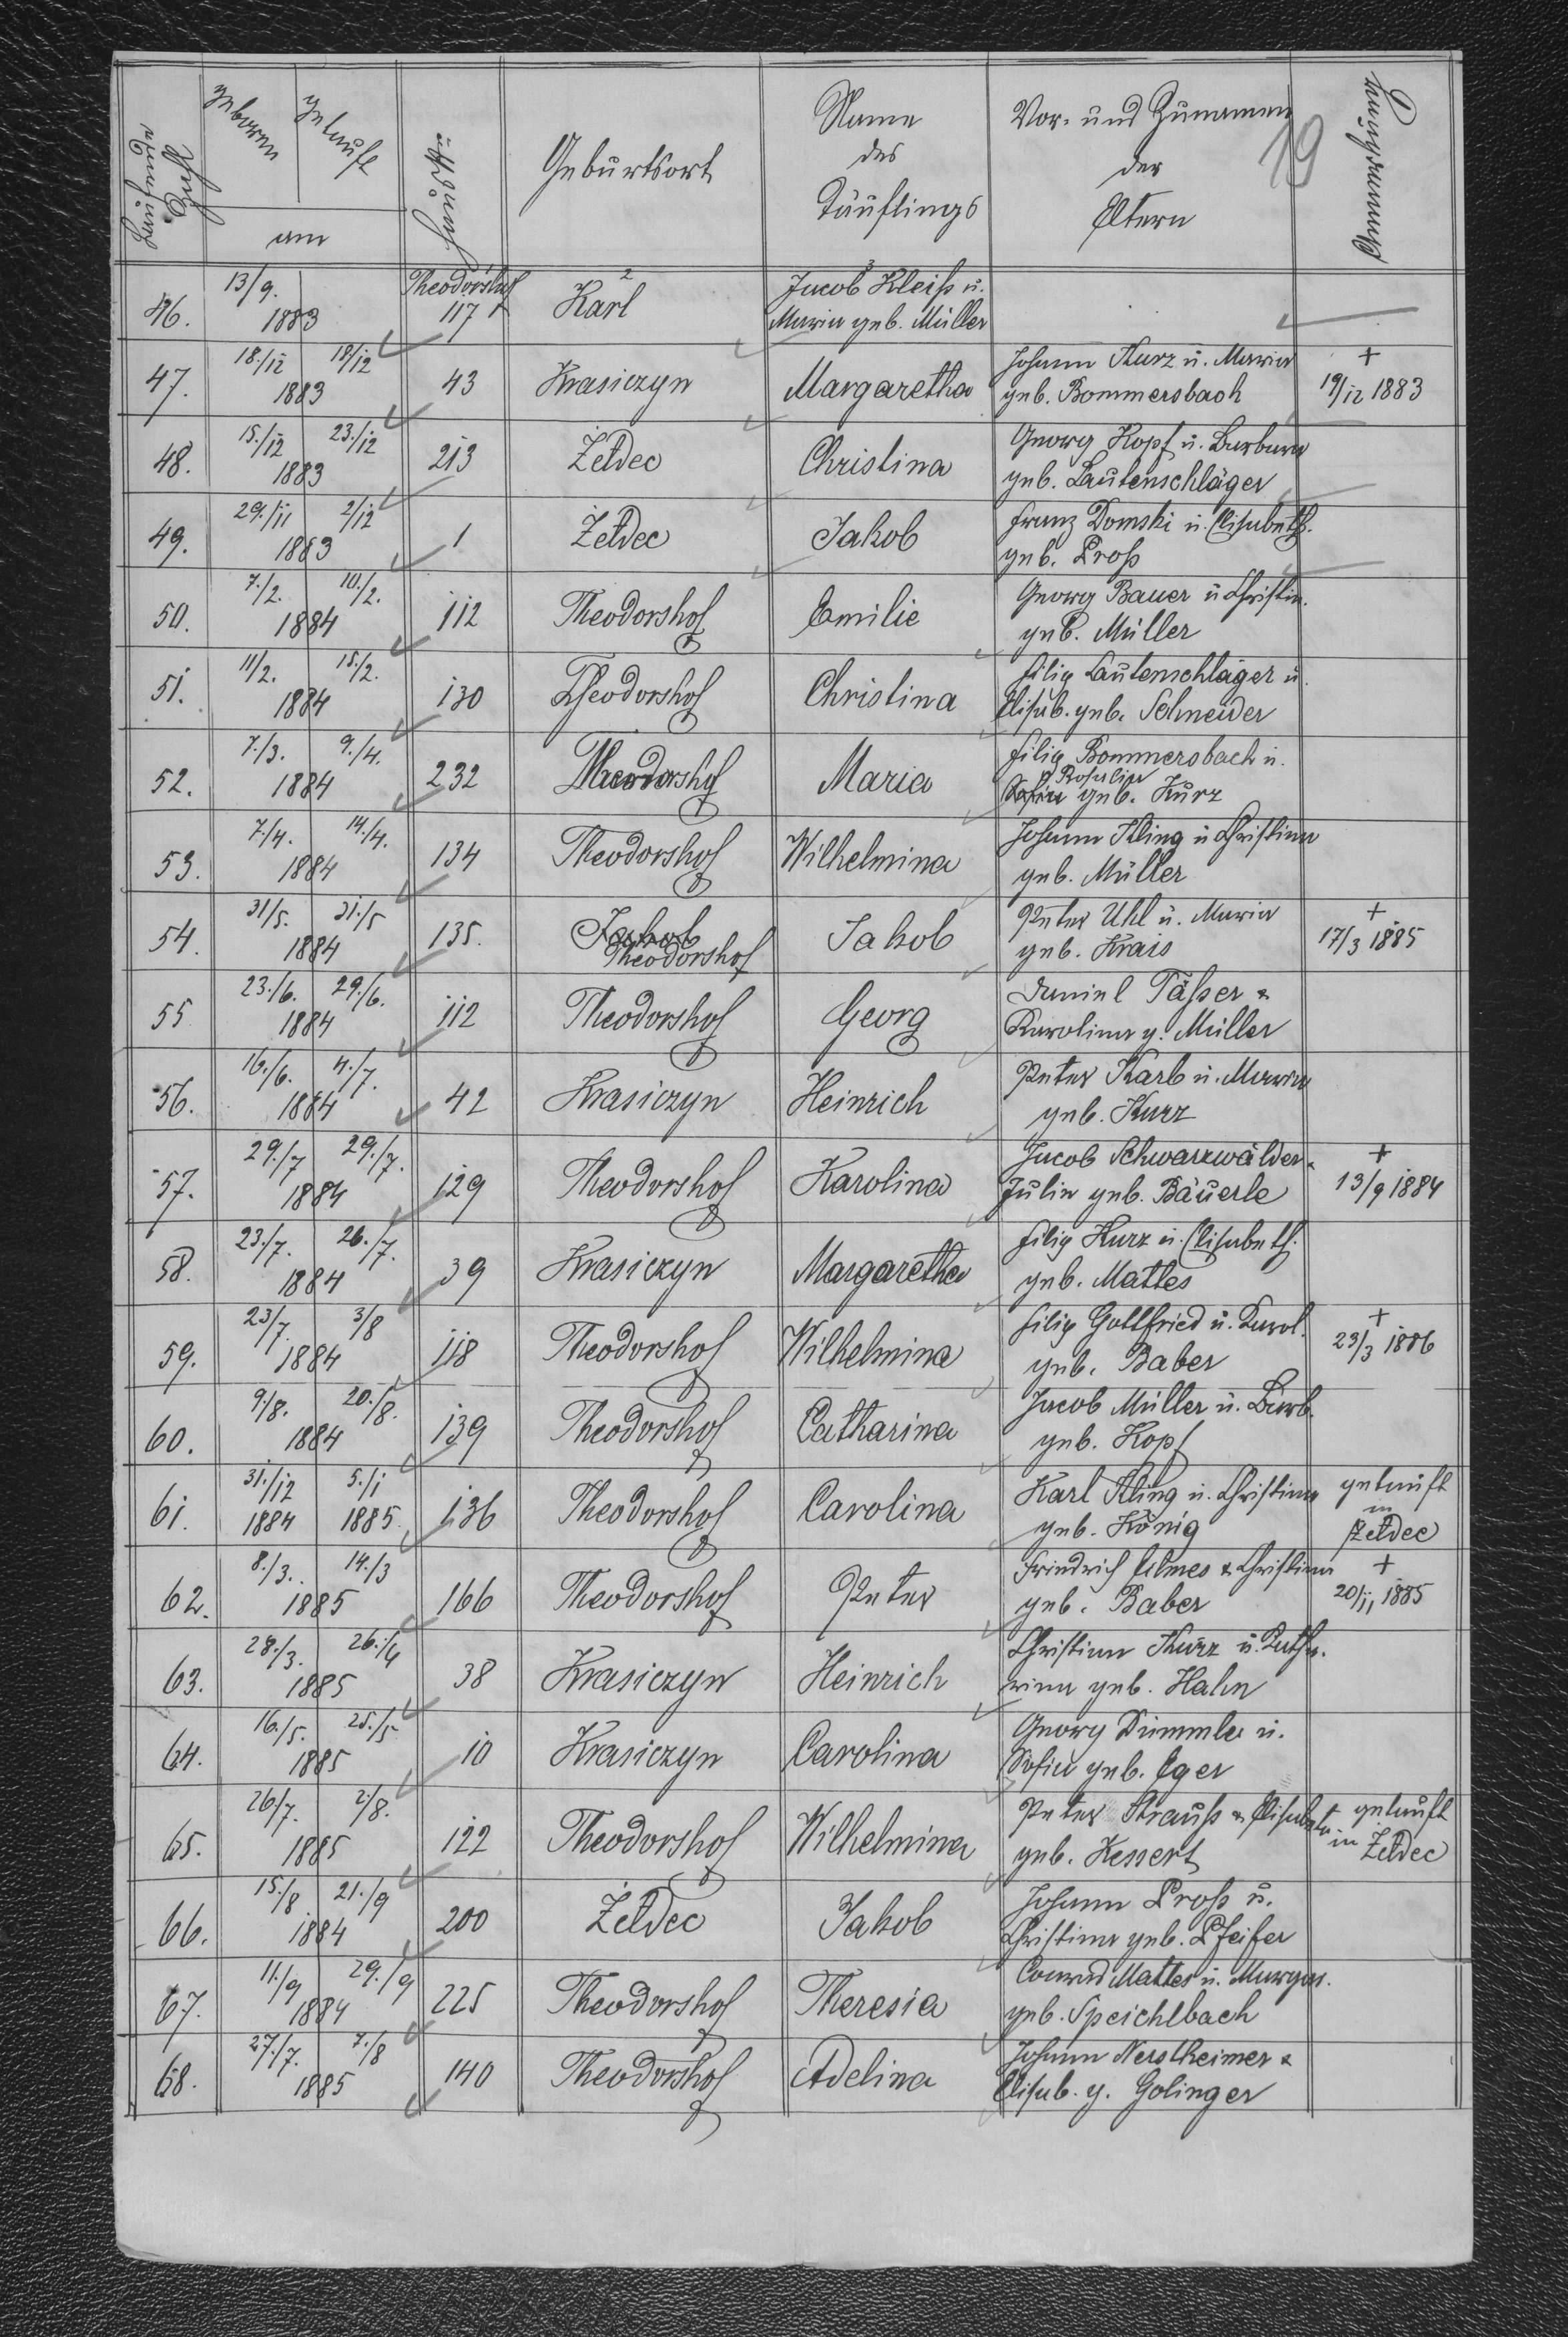 19
Laufende Zahl
geboren
getauft
am
Haus №
Geburtsort
Name
des
Täuflings
Vor- und Zunamen
der
Eltern
Anmerkung
46. 13/9. 1883 Theodorshof 117 Karl Jacob Kleiß u.
Maria geb. Müller
47. 18./12 18/12 1883 43 Krasiczyn Margaretha Johann Kurz u. Maria
geb. Bommersbach + 19/12 1883
48. 15./12 23./12 1883 213 Żełdec Christina Georg Kopf u. Barbara
geb. Lautenschläger
49. 29./11 2/12 1883 1 Żełdec Jakob Franz Domski u. Elisabeth.
geb. Proß
50. 7./2. 10./2. 1884 112 Theodorshof Emilie Georg Bauer u Christin.
geb. Müller
51. 11/2. 15./2. 1884 130 Theodorshof Christina Filip Lautenschläger u.
Elisab. geb. Schneider
52. 7./3. 9./4. 1884 232 Theodorshof Maria Filip Bommersbach u.
Rosalia
Sofia geb. Kurz
53. 7./4. 14./4. 1884 134 Theodorshof Wilhelmina Johann Kling u Christina
geb. Müller
54. 31/5. 31./5 1884 135. Jakob
Theodorshof Jakob Peter Uhl u. Maria
geb. Krais + 17/3 1885
55 23./6. 29./6. 1884 112 Theodorshof Georg Daniel Täßer &
Karolina g. Müller
56. 16./6. 4./7. 1884 42 Krasiczyn Heinrich Peter Karb u. Maria
geb. Kurz
57. 29./7 29./7. 1884 129 Theodorshof Karolina Jacob Schwarzwälder &
Julia geb. Bäuerle + 13/9 1884
58. 23./7. 26./7. 1884 39 Krasiczyn Margaretha Filip Kurz u. Elisabeth.
geb. Mattes
59. 23/7. 3/8 1884 118 Theodorshof Wilhelmina Filip Gottfried u. Karol.
geb. Baber + 23/3 1886
60. 9./8. 20./8. 1884 139 Theodorshof Catharina Jacob Müller u. Barb.
geb. Kopf
61. 31./12 1884 5./1 1885 136 Theodorshof Carolina Karl Kling u. Christina
geb. König getauft
in
Żełdec
62. 8./3. 14./3 1885 166 Theodorshof Peter Friedrich Ilmes & Christina
geb. Baber + 20/11 1885
63. 28./3. 26./4 1885 38 Krasiczyn Heinrich Christian Kurz u. Katha-
rina geb. Hahn
64. 16./5. 25./5 1885 10 Krasiczyn Carolina Georg Dümmler u.
Sofia geb. Eger
65. 26/7. 2/8. 1885 122 Theodorshof Wilhelmina Peter Strauß & Elisabeth
geb. Kessert getauft
in Żełdec
66. 15./8 21./9 1884 200 Żełdec Jakob Johann Proß u.
Christina geb. Pfeifer
67. 11./9 29./9 1884 225 Theodorshof Theresia Conrad Mattes u. Margar.
geb. Speichlbach
68. 27./7. 7./8 1885 140 Theodorshof Adelina Johann Nerstheimer &
Elisab. g. Golinger